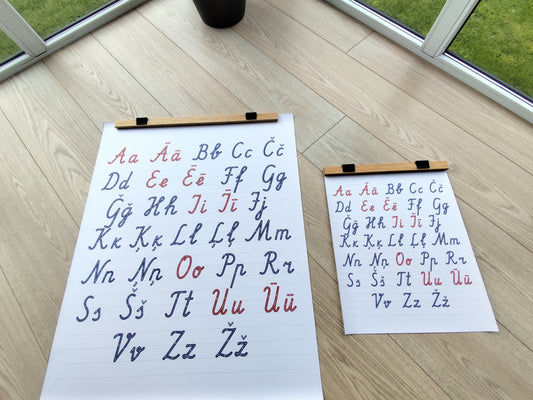 Aa Āā Bb Cc Čč
Dd Ee Ēē Ff Gg
Ģģ Hh Ii Īī Jj
Kk Ķķ Ll Ļļ Mm
Nn Ņņ Oo Pp Rr
Ss Šš Tt Uu Ūū
Vv Zz Žž
Aa Āā Bb Cc Čč
Dd Ee Ēē Ff Gg
Ģģ Hh Ii Īī Jj
Kk Ķķ Ll Ļļ Mm
Nn Ņņ Oo Pp Rr
Ss Šš Tt Uu Ūū
Vv Zz Žž